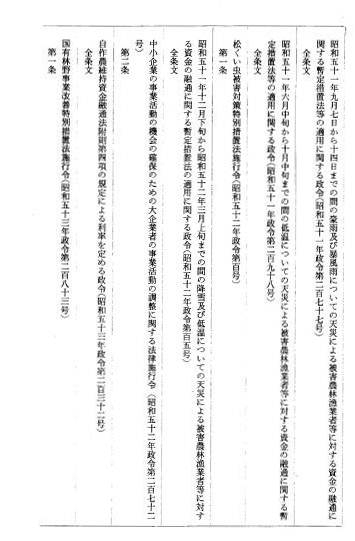 昭和五十一年九月七日から十四日までの間の豪雨及び暴風雨についての天災による被害農林漁業者等に対する資金の融通に
関する暫定措置法等の適用に関する政令(昭和五十一年政令第二百七十七号)
全条文
昭和五十一年六月中旬から十月中旬までの間の低温についての天災による被害農林漁業者等に対する資金の融通に関する暫
定措置法等の適用に関する政令(昭和五十一年政令第二百九十八号)
全条文
松くい虫被害対策特別措置法施行令(昭和五十二年政令第百号)
第一条
昭和五十一年十二月下旬から昭和五十二年三月上旬までの間の降雪及び低温についての天災による被害農林漁業者等に対す
る資金の融通に関する暫定措置法の適用に関する政令(昭和五十二年政令第百五号)
全条文
中小企業の事業活動の機会の確保のための大企業者の事業活動の調整に関する法律施行令(昭和五十二年政令第二百七十二
号)
第二条
自作農維持資金融通法附則第四項の規定による利率を定める政令(昭和五十三年政令第二百三十二号)
全条文
国有林野事業改善特別措置法施行令(昭和五十三年政令第二百八十三号)
第一条